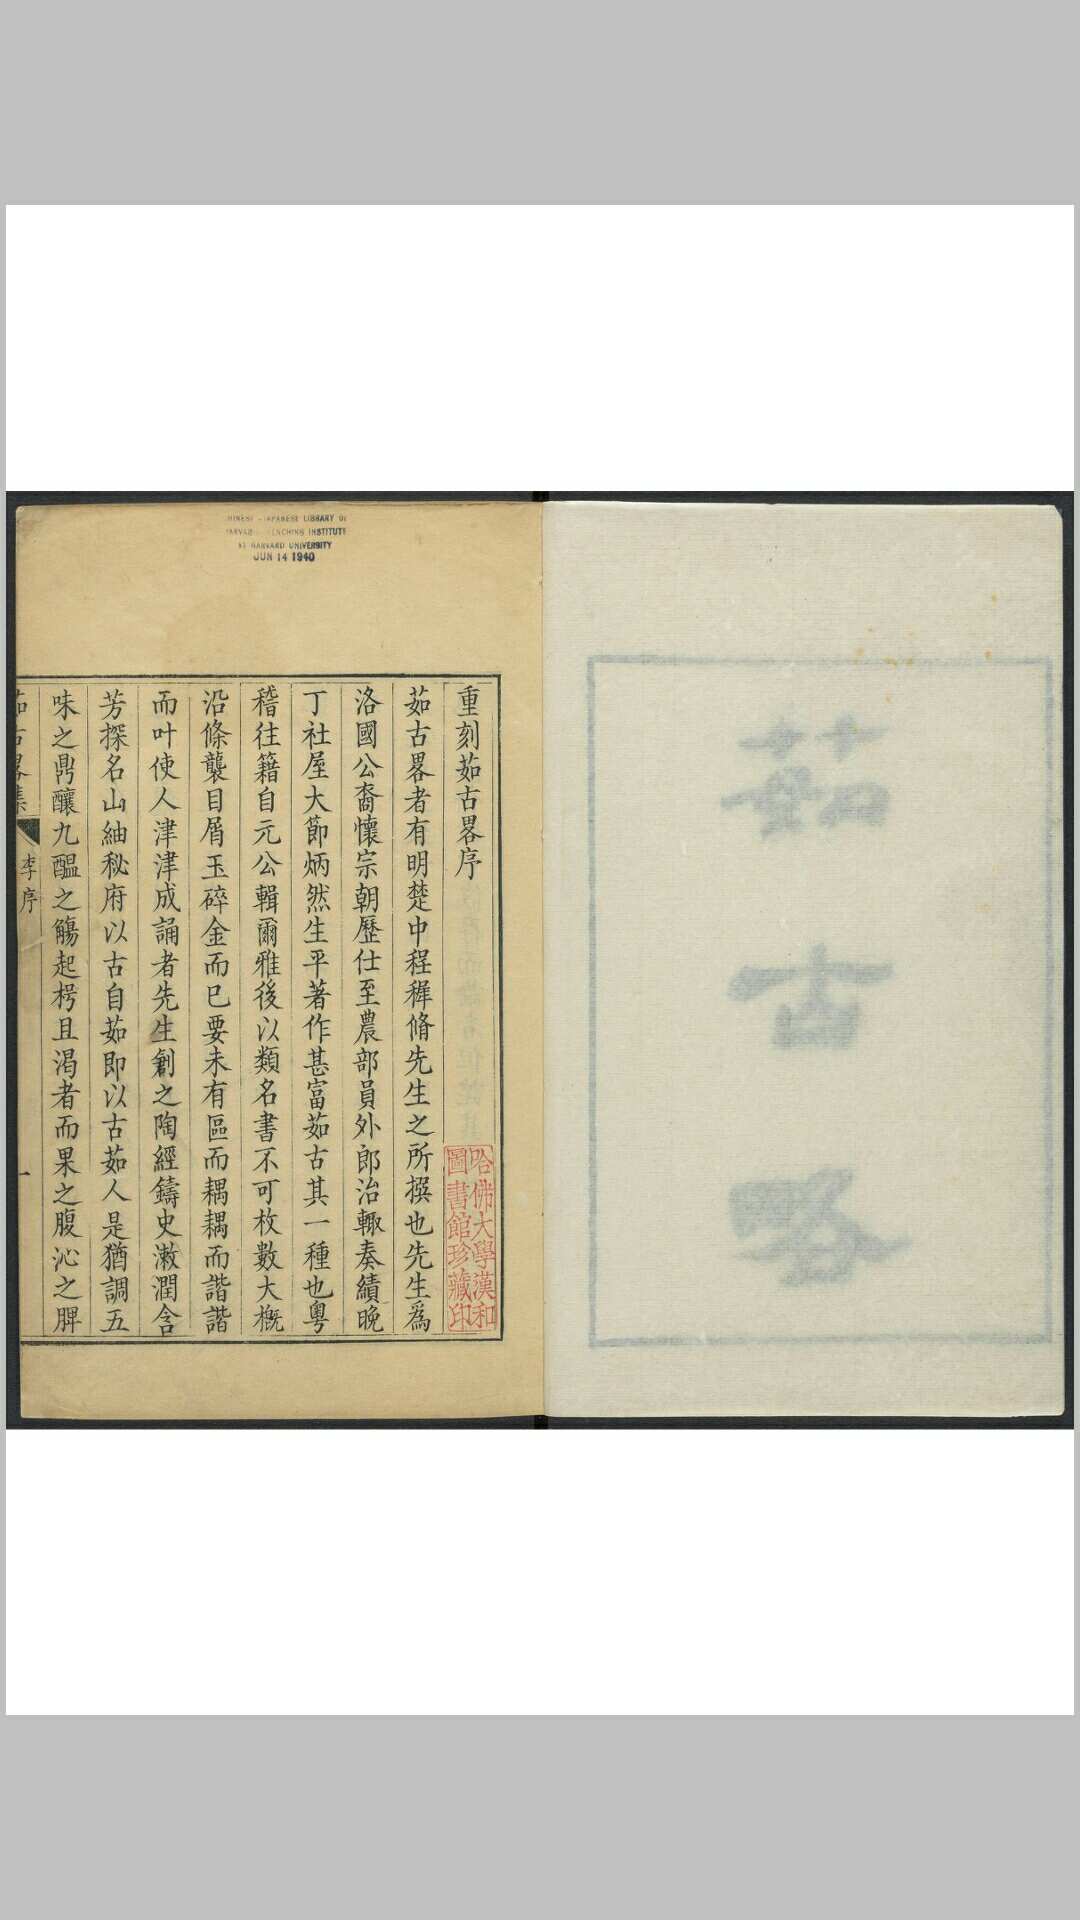 茹
古
略
CHINESE-JAPANESE LIBRARY OF
HARVARD-YENCHING INSTITUTE
AT HARVARD UNIVERSITY
JUN 14 1940
重刻茹古畧序
茹古畧者有明楚中程穉脩先生之所撰也先生爲
洛國公裔懷宗朝歷仕至農部員外郎治輙奏績晚
丁社屋大節炳然生平著作甚富茹古其一種也粵
稽往籍自元公輯爾雅後以類名書不可枚數大概
沿條襲目屑玉碎金而已要未有區而耦耦而諧諧
而叶使人津津成誦者先生創之陶經鑄史漱潤含
芳探名山紬秘府以古自茹即以古茹人是猶調五
味之鼎釀九醞之觴起枵且渴者而果之腹沁之脾
茹古畧集
李序
一
哈佛大學漢和
圖書館珍藏印